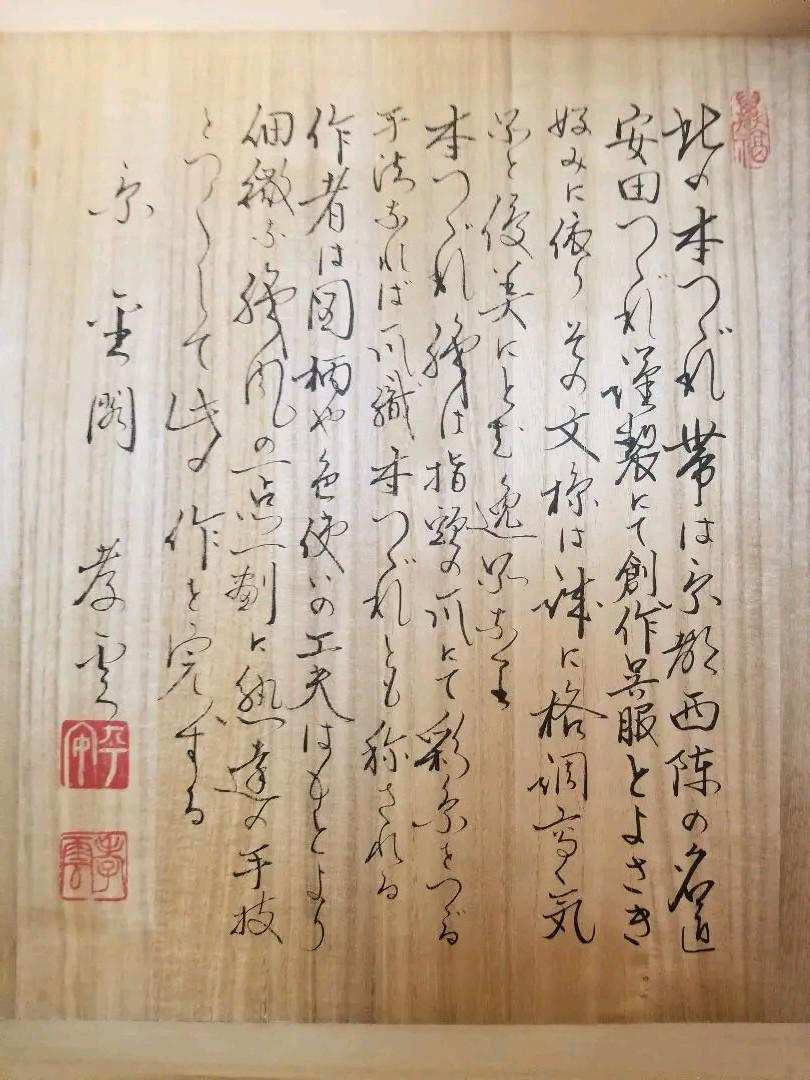 此の本つづれ帯は京都西陣の名匠
安田つづれ謹製にて創作呉服とよさき
好みに依りその文様は誠に格調高く気
品と優美にとむ逸品なり
本つづれ織は指頭の爪にて彩糸をつづる
手法なれば爪織本つづれとも称される
作者は図柄や色使いの工夫はもとより
細微な織風の一点一劃に熟達の手技
をつくして此の作を完成する
京 金閣 孝雲
孝雲